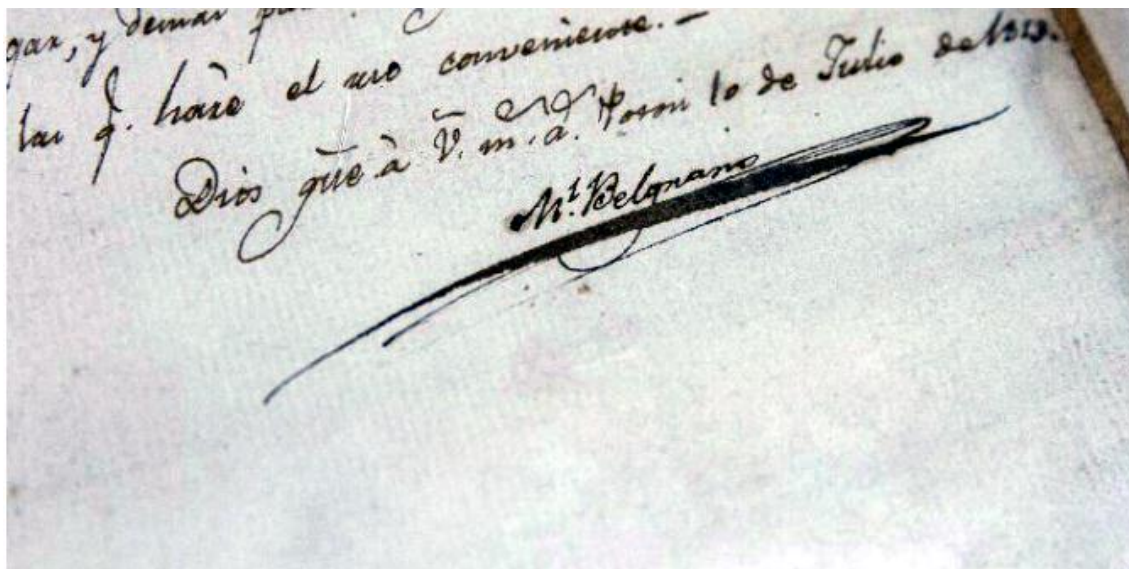 gar, y demas
las q. haré el uso conveniente. —
Dios gũe à V. m. a. Potosi 10 de Julio de 1813.
M.l Belgrano